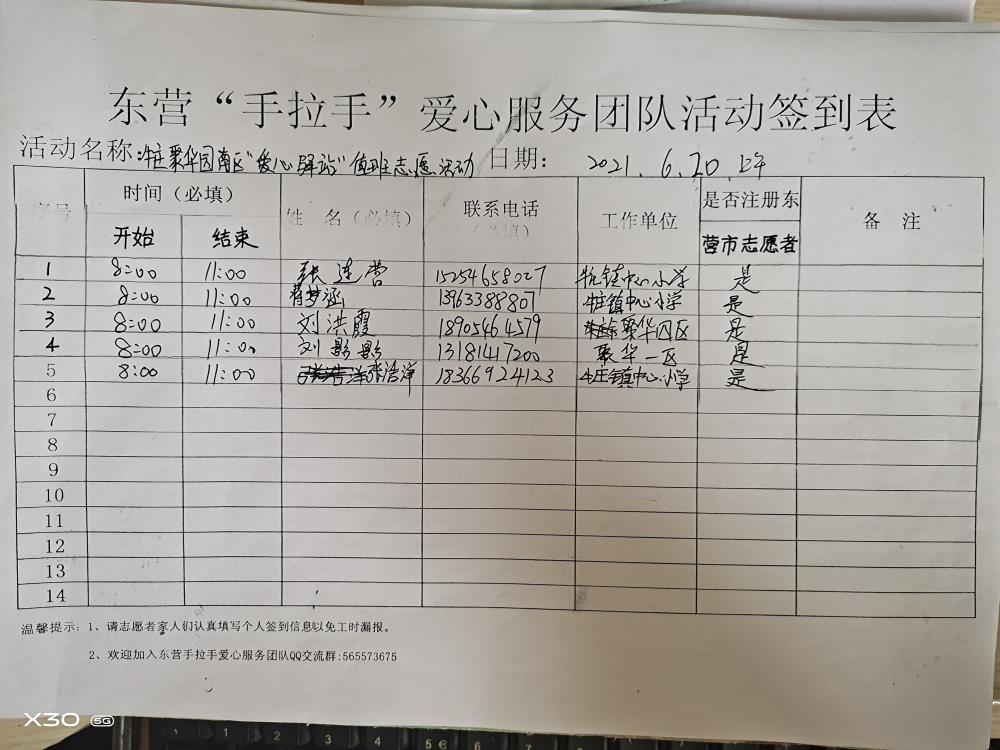 东营“手拉手”爱心服务团队活动签到表
活动名称:牛庄聚华园南区“爱心驿站”值班志愿活动 日期: 2021.6.20.上午
序号 时间（必填） 姓 名（必填） 联系电话（必填） 工作单位 是否注册东营市志愿者 备 注
开始 结束
1 8:00 11:00 张连营 15254658027 牛庄镇中心小学 是
2 8:00 11:00 梦涵 13963388807 牛庄镇中心小学 是
3 8:00 11:00 刘洪霞 18905464579 聚华四区 是
4 8:00 11:00 刘影影 13181417200 聚华一区 是
5 8:00 11:00 张浩洋 18366924123 牛庄镇中心小学 是
6
7
8
9
10
11
12
13
14
温馨提示: 1、请志愿者家人们认真填写个人签到信息以免工时漏报。
2、欢迎加入东营手拉手爱心服务团队QQ交流群:565573675
X30 5G